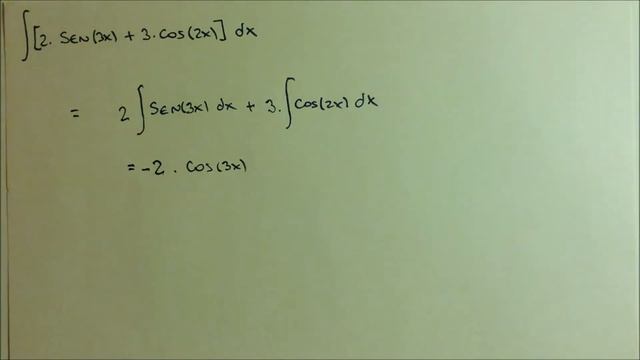 ∫[2. SEN(3x) + 3. COS(2x)] dx
= 2 ∫SEN(3x) dx + 3. ∫COS(2x) dx
= -2 . COS(3x)